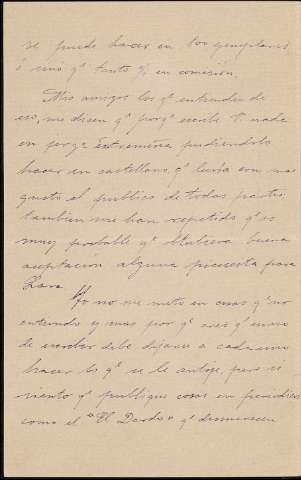 se puede hacer en los ejemplares
ó sinó qe tanto % en comisión.
Mis amigos los qe entienden de
eso, me dicen qe porqe escribe V. nada
en jerga Extremeña pudiendolo
hacer en castellano, qe leería con mas
gusto el publico de todas partes,
tambien me han repetido qe es
muy probable qe tubiera buena
aceptación alguna piececita para
Lara.
Yo no me meto en cosas qe no
entiendo y mas por qe creo qe en eso
de escribir debe dejarse a cada uno
hacer lo qe se le antoje, pero si
siento qe publique cosas en periodicos
como el "El Dardo" qe desmerecen